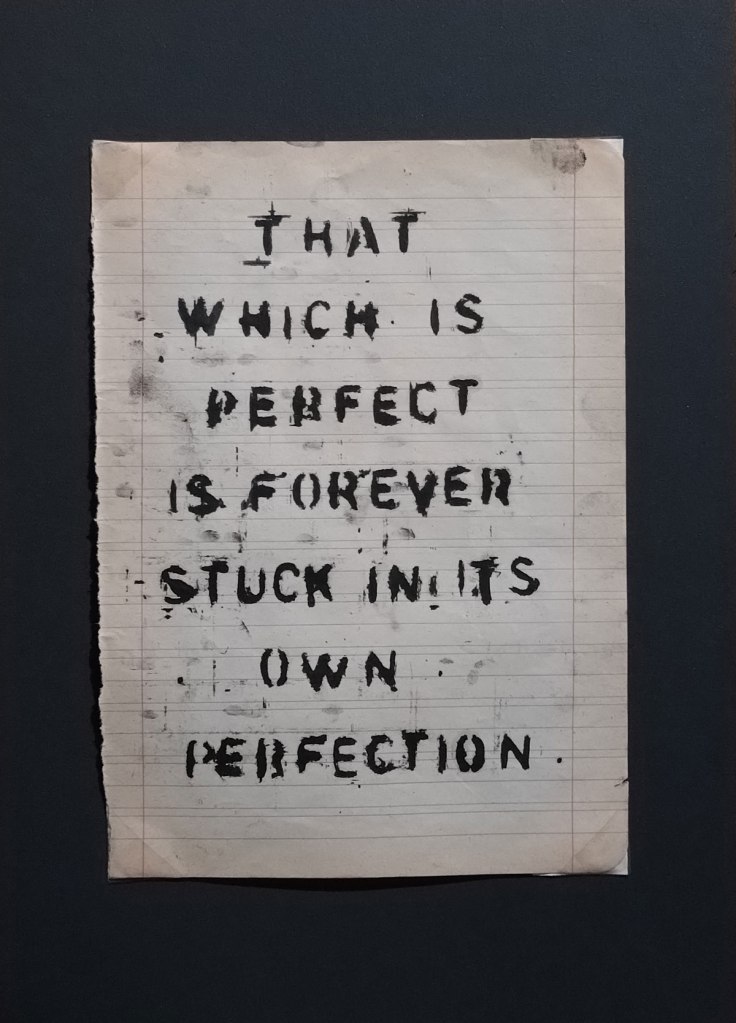 THAT
WHICH IS
PERFECT
IS FOREVER
STUCK IN ITS
OWN
PERFECTION.